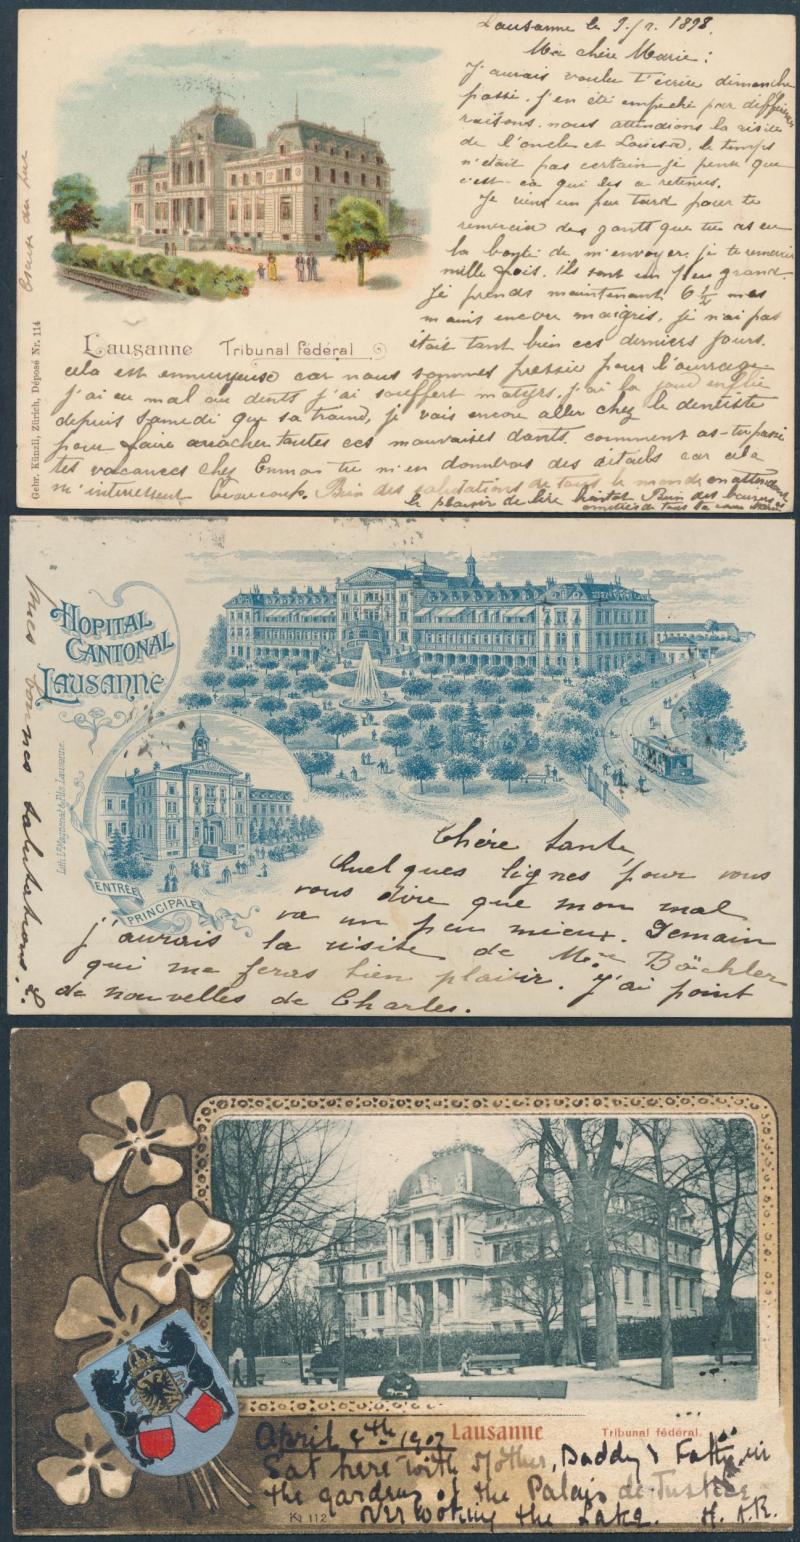 Lausanne le 9. 1898.
Ma chère Marie:
J'aurais voulu t'écrire dimanche
passé, j'en été empeché par différentes
raisons. nous attendions la visite
de l'oncle et Louise, le temps
n'était pas certain je pense que
c'est ça qui les a retenus.
Je viens un peu tard pour te
remercier des gants que tu as eu
la bonté de m'envoyer, je te remercie
mille fois. Ils sont un peu grand.
Je prends maintenant 6 1/2 mes
mains encore maigris, je n'ai pas
était tant bien ces derniers jours.
Lausanne Tribunal fédéral
Gebr. Künzli, Zürich, Déposé Nr. 114
cela est ennuyeuse car nous sommes pressée pour l'ouvrage
j'ai eu mal au dents j'ai souffert matyrs, j'ai la joue enflée
depuis samedi que sa traine, je vais encore aller chez le dentiste
pour faire arracher toutes ces mauvaises dants, comment as-tu passé
tes vacances chez Emma tu m'en donneras des détails car cela
m'interessent beaucoup. Bien des salutations de tous le monde en attendant
le plaisir de te lire bientot Bien des baisers
de tous ta
HOPITAL
CANTONAL
LAUSANNE
Lith. Ls Magnenat & fils Lausanne.
ENTRÉE
PRINCIPALE
Chère tante
Quelques lignes pour vous
vous dire que mon mal
va un peu mieux. Demain
j'aurais la visite de Mme Bächler
qui me feras bien plaisir. J'ai point
de nouvelles de Charles.
bonnes salutations. L.
Lausanne Tribunal fédéral.
April 4th 1902
Sat here with Mother, Daddy & Fatty in
the gardens of the Palais de Justice
overlooking the Lake. H. A. R.
KN 112